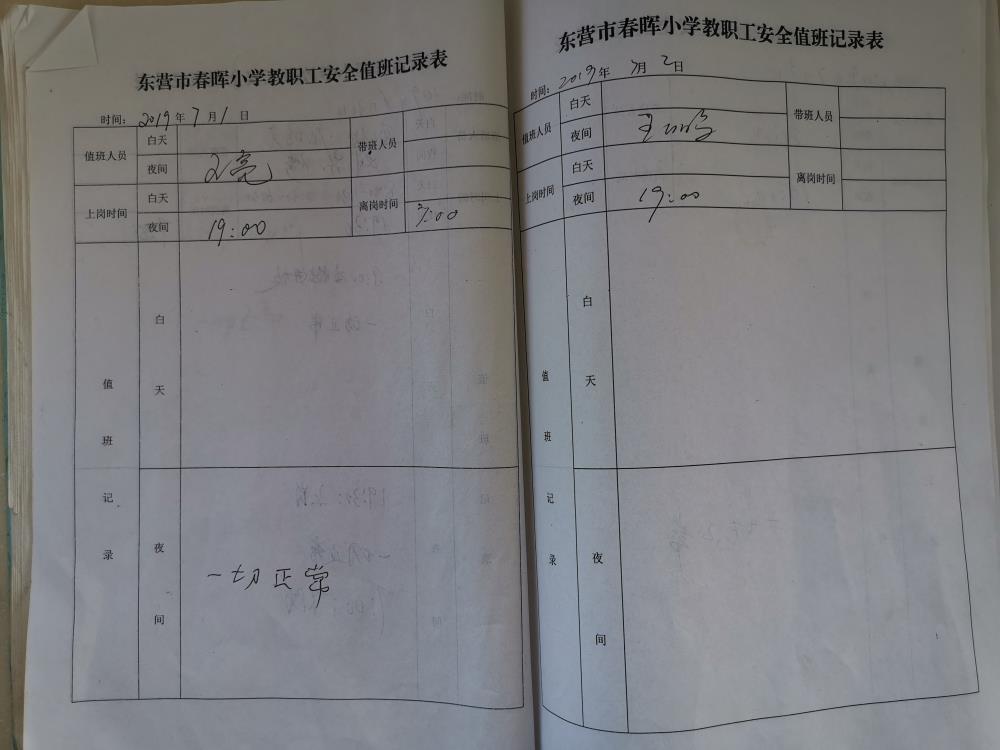 东营市春晖小学教职工安全值班记录表
时间: 2019年7月1日
值班人员 白天 带班人员
夜间
上岗时间 白天 离岗时间
夜间 19:00 7:00
值班记录
白天
夜间
一切正常
东营市春晖小学教职工安全值班记录表
时间: 2019年7月2日
值班人员 白天 带班人员
夜间
上岗时间 白天 离岗时间
夜间 19:00
值班记录
白天
夜间